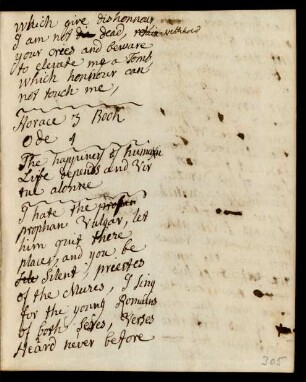 which give dishonnour
I am not de dead, retain withhold
your cries and beware
to elevate me a Tomb
which honnour can
not touch me,
Horace 3 Book
Ode 1
The happiness of humane
Life depends and Vir
tue alonne
I hate the prophan
prophan Vulgar, let
him quit there
places, and you be
Silent, preestes
of the Muses, I sing
for the young Romains
of both sexes, Verses
Heard never before
305